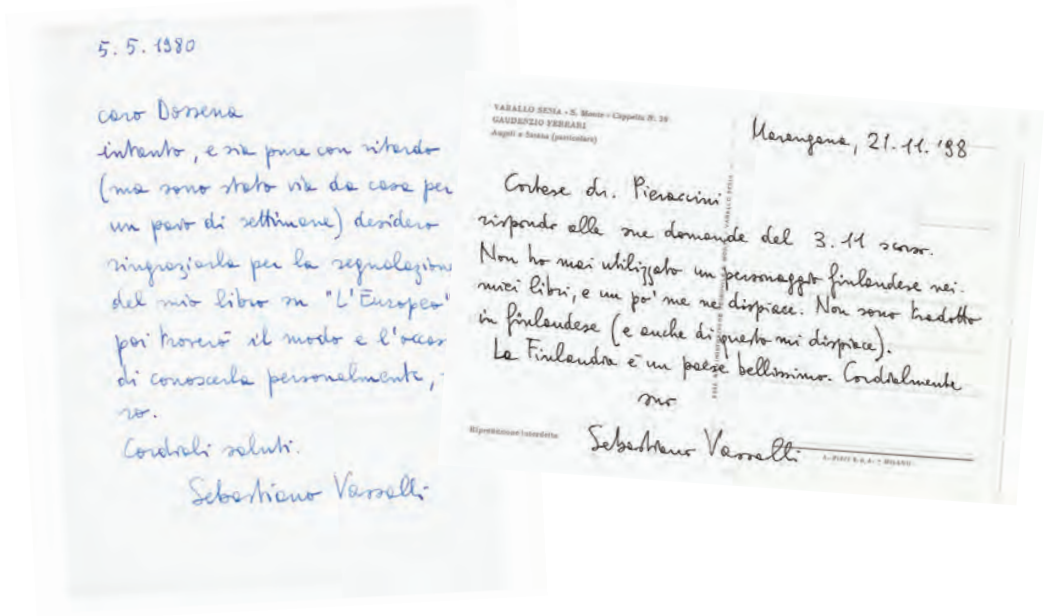 5.5.1980
caro Dossena
intanto, e sia pure con ritardo
(ma sono stato via da casa per
un paio di settimane) desidero
ringraziarla per la segnalazione
del mio libro su "L'Europeo"
poi troverò il modo e l'occas
di conoscerla personalmente,
ro.
Cordiali saluti.
Sebastiano Vassalli
VARALLO SESIA - S. Monte - Cappella N.
GAUDENZIO FERRARI
Angeli e (particolare)
Marangana, 21.11.'98
Cortese dr. Pieraccini
rispondo alle sue domande del 3.11 scorso.
Non ho mai utilizzato un personaggio finlandese nei
miei libri, e un po' me ne dispiace. Non sono tradotto
in finlandese (e anche di questo mi dispiace).
La Finlandia è un paese bellissimo. Cordialmente
suo
Sebastiano Vassalli
Riproduzione interdetta
MILANO